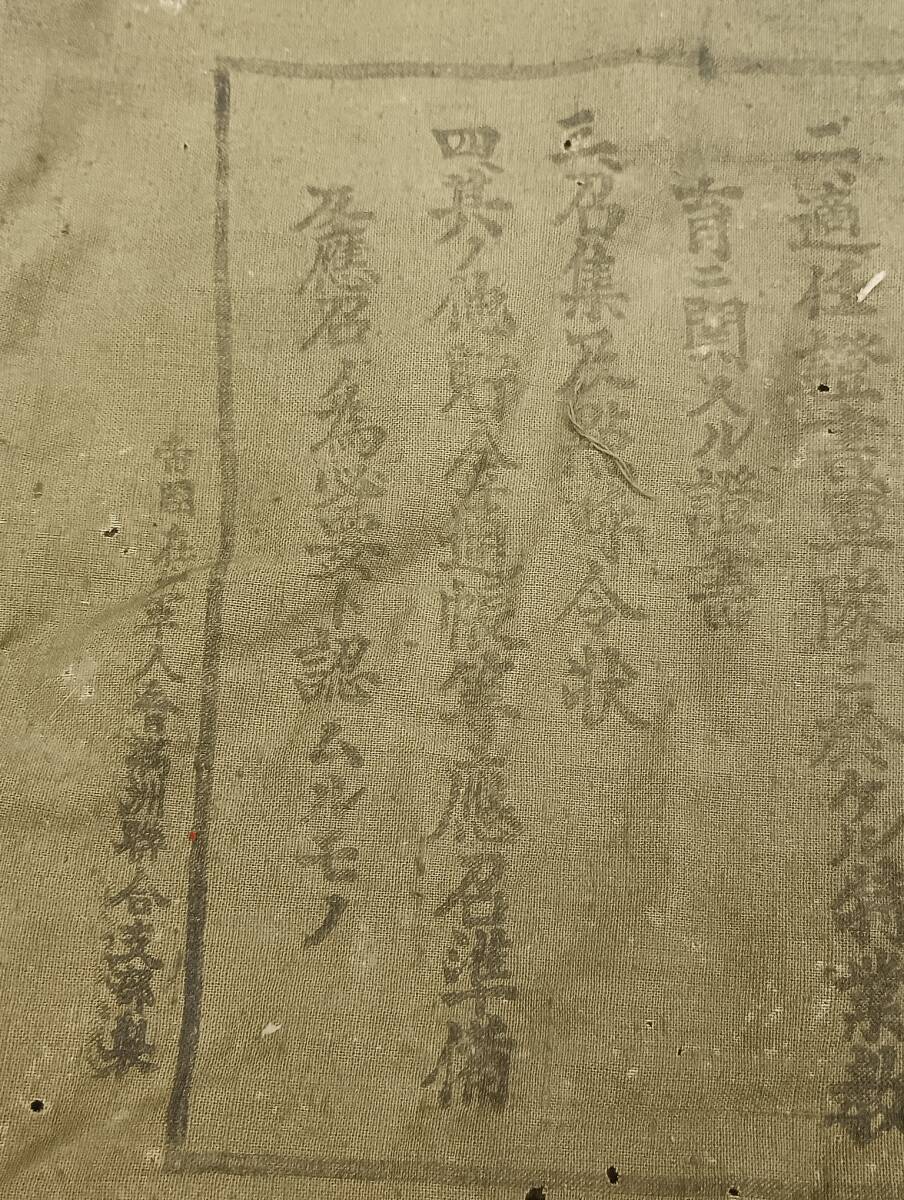 二、適任證書軍隊ニ於ケル特業教
育ニ關スル證書
三、召集及點呼令狀
四其ノ他貯金通帳等應召準備
及應召ノ為必要ト認ムルモノ
帝國在軍人會洲聯合支部製